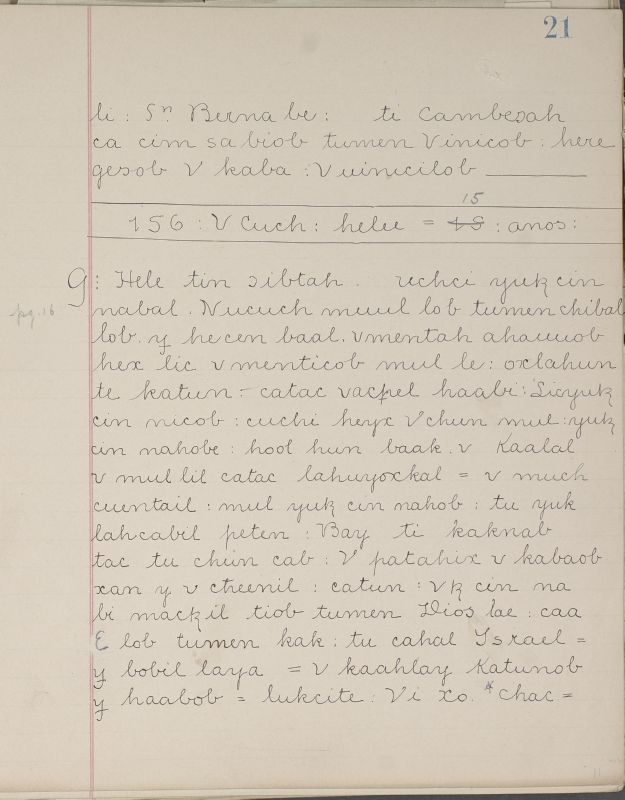 21
li : Sⁿ Bernabe : ti Cambezah
ca cim sabiob tumen Vinicob : here
gesob V kaba : V uinicilob
15
156 : V Cuch : helee = 18 : anos :
G : Hele tin ɔibtah . uchci yukcin
pg. 16
nabal . Nucuch muul lob tumen chibal
lob . y he cen baal . vmentah ahauuob
hex lic v menticob mul le : oxlahun
te katun : - catac vacpel haabi : Licyuk
cin nicob : cuchi heyx V chun mul : yuk
cin nahobe : hool hun baak . v Kaalal
v mul lil catac lahuyoxkal = v much
cuentail : mul yuk cin nahob : tu yuk
lahcabil peten : Bay ti kaknab
tac tu chun cab : V patahix v kabaob
xan y v cheenil : catun : Vk cin na
bi mackil tiob tumen Dios lae : caa
Ɛ lob tumen kak : tu cahal Israel =
y bobil laya = v kaahlay Katunob
y haabob = lukcite : Vi xo . * chac =